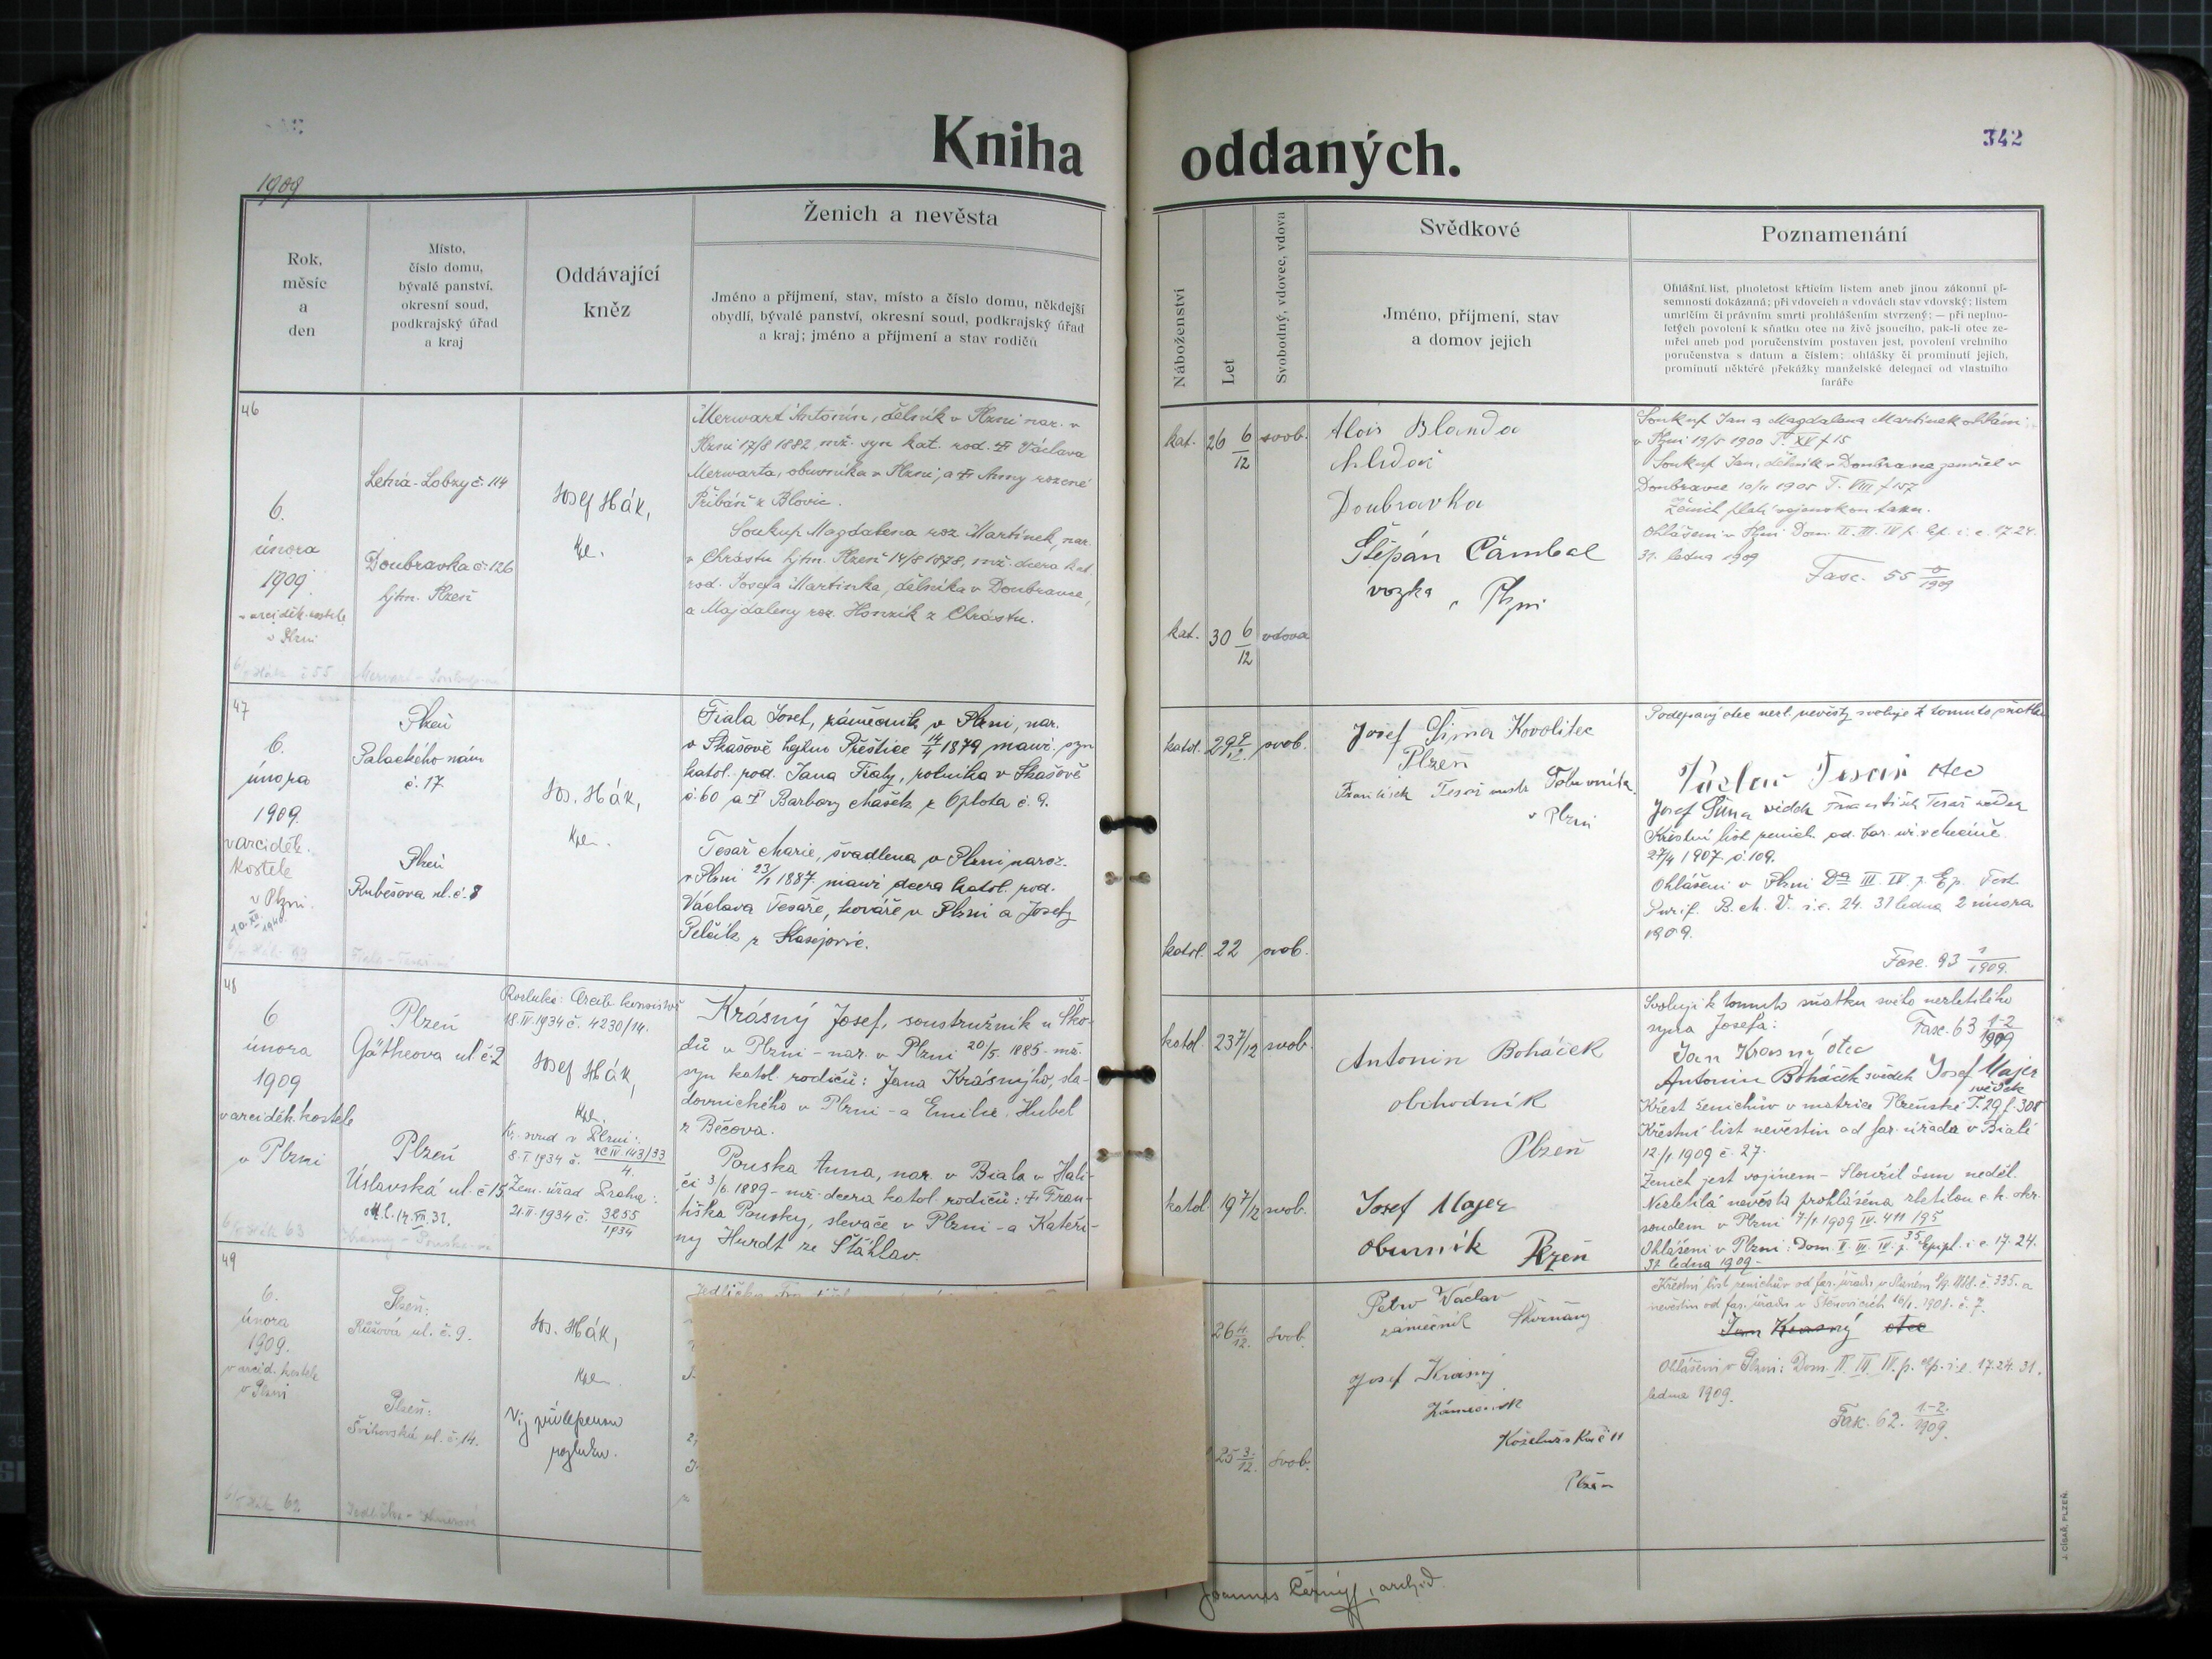 Kniha oddaných.
342
1909
Rok,
měsíc
a
den
Místo,
číslo domu,
bývalé panství,
okresní soud,
podkrajský úřad
a kraj
Oddávající
kněz
Ženich a nevěsta
Jméno a příjmení, stav, místo a číslo domu, někdejší
obydlí, bývalé panství, okresní soud, podkrajský úřad
a kraj; jméno a příjmení a stav rodičů
Náboženství
Let
Svobodný, vdovec, vdova
Svědkové
Jméno, příjmení, stav
a domov jejich
Poznamenání
Ohlášní list, plnoletost křticím listem aneb jinou zákonní pí-
semností dokázaná; při vdovcích a vdovách stav vdovský; listem
umrlčím či právním smrti prohlášením stvrzený; — při neplno-
letých povolení k sňatku otce na živě jsoucího, pak-li otec ze-
mřel aneb pod poručenstvím postaven jest, povolení vrchního
poručenstva s datum a číslem; ohlášky či prominutí jejich,
prominutí některé překážky manželské delegací od vlastního
faráře
46
6.
února
1909
v arciděk. kostele
v Plzni
Letná-Lobzy č. 114
Doubravka č. 126
hjtm. Plzeň
Josef Hák,
kpl.
Merwart Antonín, dělník v Plzni nar. v
Plzni 17/8 1882, mž. syn kat. rod. † Václava
Merwarta, obuvníka v Plzni, a † Anny rozené
Přibáň z Blovic.
Soukup Magdalena roz. Martínek, nar.
v Chrástu hjtm. Plzeň 14/8 1878, mž. dcera kat.
rod. Josefa Martínka, dělníka v Doubravce,
a Majdaleny roz. Honzík z Chrástu.
kat. 26 6/12 svob.
kat. 30 6/12 vdova
Alois Blanda
Doubravka
Štěpán Cambal
vozka v Plzni
Soukup Jan a Magdalena Martínek oddáni
v Plzni 19/5 1900 T. XV f 15
Soukup Jan, dělník v Doubravce zemřel v
Doubravce 10/11 1905 T. VIII f 157
Ohlášeni v Plzni Dom. II. III. IV p. Ep. i. e. 17. 24.
31. ledna 1909
Fasc. 55
1909
47
6.
února
1909
v arciděk.
kostele
v Plzni.
Plzeň
Palackého nám
č. 17
Plzeň
Rubešova ul. č. 8
Jos. Hák,
kpl.
Fiala Josef, zámečník v Plzni, nar.
v Skašově hejtm Přeštice 14/4 1879 manž. syn
katol. rod. Jana Fialy, rolníka v Skašově
č. 60 a † Barbory Mašek z Oplota č. 9.
Tesař Marie, švadlena v Plzni naroz.
v Plzni 23/1 1887 manž dcera katol. rod.
Václava Tesaře, kováře v Plzni a Josefy
Pelčík z Kasejovic.
katol. 29 9/12 svob.
katol. 22 svob.
Josef Šima Kovolitec
Plzeň
František Tesař
v Plzni
Podepsaný otec nezl. nevěsty svoluje k tomuto sňatku
Václav Tesař otec
Josef Šima svědek František Tesař svědek
27/4 1907 č. 109.
Ohlášeni v Plzni Dca III. IV. p. Ep. Fest.
Purif. B. M. V. i. e. 24. 31 ledna 2 února
1909.
Fasc. 93 1/1909.
48
6
února
1909
v arciděk. kostele
v Plzni
Plzeň
Götheova ul č. 2
Plzeň
Úslavská ul. č 15
Rozluka: Arcib. konsistoř
18. IV. 1934 č. 4230/14.
Josef Hák,
kpl.
Kr. soud v Plzni:
8. I. 1934 č. 143/33
4.
Zem. úřad Praha:
21. II. 1934 č. 3255
1934
Krásný Josef, soustružník u Ško-
dů v Plzni – nar. v Plzni 20/5. 1885 – mž.
syn katol. rodičů: Jana Krásnýho, sla-
dovnického v Plzni – a Emilie Hubel
z Bečova.
Pouska Anna, nar. v Biala v Hali-
či 3/6. 1889 – mž. dcera katol. rodičů: † Fran-
tiška Pousky, slevače v Plzni – a Kateři-
ny Hurdt ze Štáhlav.
katol. 23 7/12 svob.
katol 19 7/12 svob.
Antonin Boháček
obchodník
Plzeň
Josef Majer
obuvník Plzeň
Svoluji k tomuto sňatku svého nezletilého
syna Josefa: Fasc. 63 1-2/1909
Jan Krasný otec
Antonin Boháček svědek Josef Majer
svědek
Křest ženichův v matrice Plzeňské T. 29 f. 308
Křestní list nevěstin od far. úřadu v Bialé
12/1 1909 č. 27.
Ženich jest vojínem – Sloužil osm neděl.
Nezletilá nevěsta prohlášena zletilou c. k. okr.
soudem v Plzni 7/1. 1909 IV. 411 195
35
Ohlášeni v Plzni: Dom. II. III. IV. p. Epiph. i. e. 17. 24.
31 ledna 1909 –
49
6.
února
1909.
v arcid. kostele
v Plzni
Plzeň:
Růžová ul. č. 9.
Plzeň:
Švihovská ul. č. 14.
Jos. Hák,
kpl.
Viz přilepenou
rozluku.
26 4/12. svob.
25 3/12. svob.
Petrv Václav
zámečník Skvrňany
Josef Krásný
Zámečník
Plzeň
nevěstin od far. úřadu v Štěnovicích 16/1. 1901. č. 7.
Jan Krasný otec
Ohlášeni v Plzni: Dom. II. III. IV. p. Ep. i. e. 17. 24. 31.
ledna 1909.
Fasc. 62. 1.-2./1909.
Joannes Černý, archid.
J. CÍSAŘ, PLZEŇ.